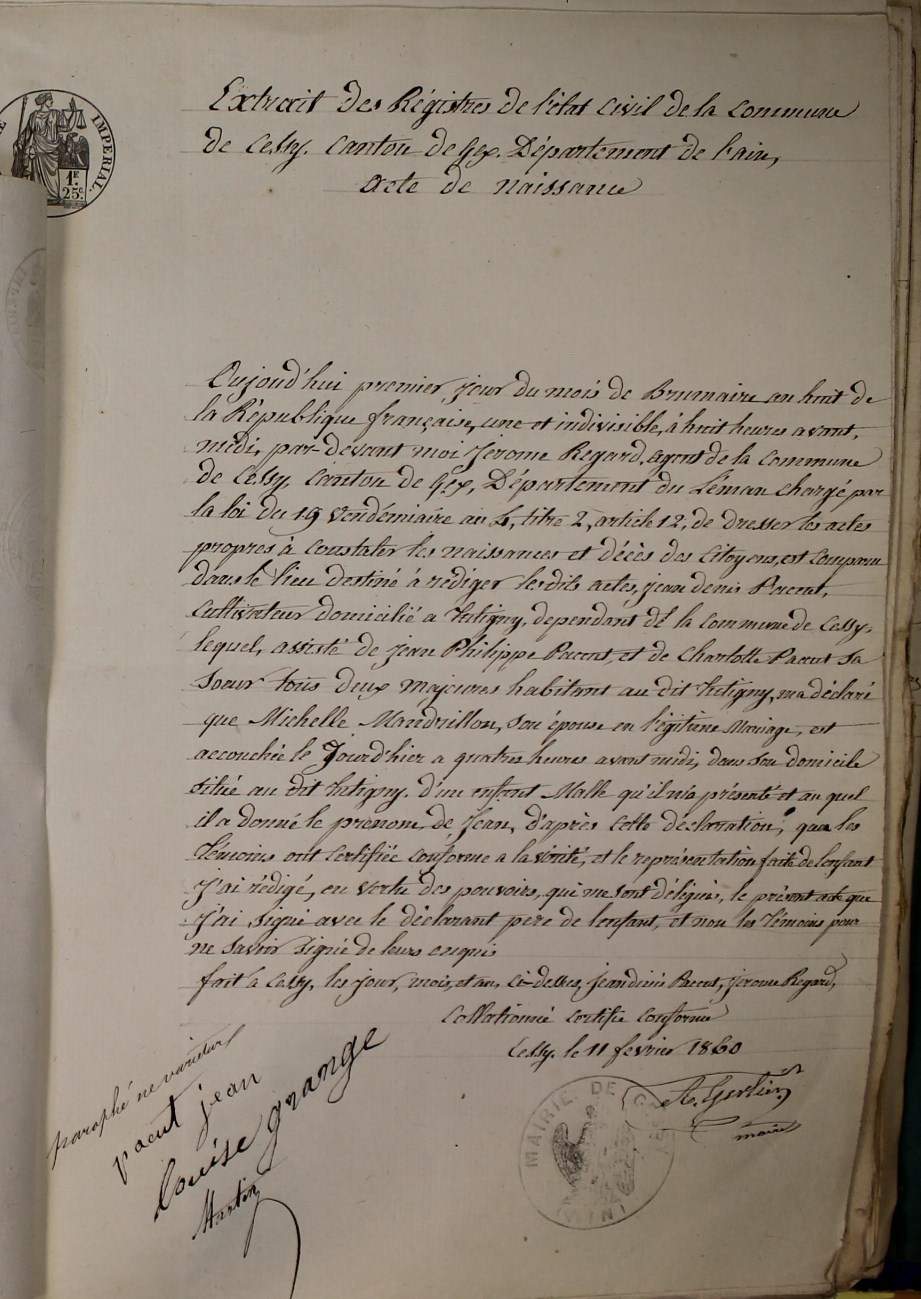 IMPERIAL.
1F.
25c.
Extrait des Régistres de l'état civil de la commune
de Cessy. Canton de Gex. Département de l'ain,
acte de naissance
Aujourd'hui premier, jour du mois de Brumaire an huit de
la République française, une et indivisible, à huit heures avant,
midi, par-devant moi Jerome Regard, agent de la commune
de Cessy Canton de Gex, Département du Léman chargé par
la loi du 19 vendémiaire an 4, titre 2, article 12, de dresser les actes
propres à constater les naissances et décès des Citoyens, est comparu
dans le lieu destiné à rédiger les dits actes, jean denis Pacut,
Cultivateur domicilié a Tutigny, dependant de la commune de Cessy,
lequel, assisté de jean Philippe Pacut, et de Charlotte Pacut sa
soeur tous deux majeures habitant au dit Tutigny, ma déclaré
que Michelle Mandrillon, son épouse en légitime Mariage, est
accouchée le Jourd'hier a quatres heures avant midi, dans son domicile
situé au dit Tutigny. d'un enfant Malle qu'il m'a présenté et au quel
il a donné le prenom, de Jean, d'après cette déclaration, que les
Témoins ont certifiée conforme a la vérité, et le représentation faite de l'enfant
J'ai rédigé, en vertu des pouvoirs, qui me sont délégués, le présent acte que
J'ai signé avec le déclarant père de l'enfant, et non les Témoins pour
ne savoir signé de leurs enquis
fait à Cessy, les jour, mois, et an, ci-dessus, jean denis Pacut, jerome Regard,
Collationné certifié conforme
Cessy, le 11 fevrier 1860
maire
MAIRIE DE
paraphé ne varietur
pacut jean
Louise grange
Martin